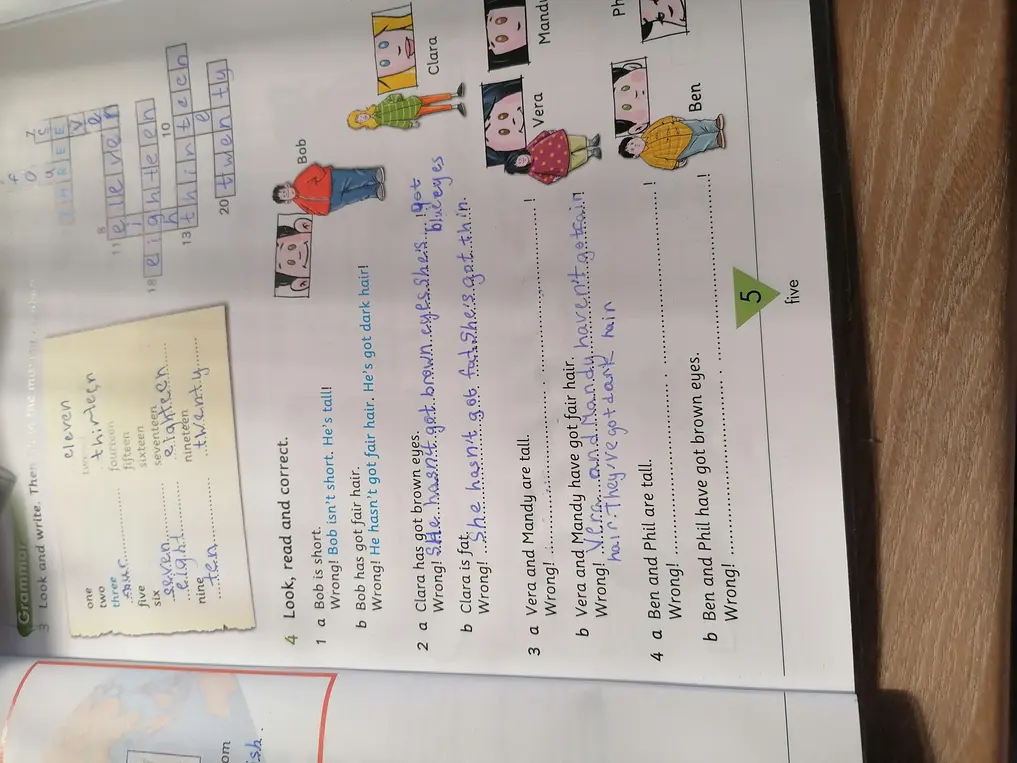 Grammar
3 Look and write. Then
one
two
three
four
five
six
seven
eight
nine
ten
eleven
thirteen
fourteen
fifteen
sixteen
seventeen
eighteen
nineteen
twenty
T H R E E
8
11 elleven
18 eighteen
10
13 thinteech
20 twenty
4 Look, read and correct.
1 a Bob is short.
Wrong! Bob isn't short. He's tall!
b Bob has got fair hair.
Wrong! He hasn't got fair hair. He's got dark hair!
Bob
2 a Clara has got brown eyes.
Wrong! SHe hasn't got brown eyes. she's got !
blue eyes
b Clara is fat.
Wrong! She hasn't got fat she's got thin.
Clara
3 a Vera and Mandy are tall.
Wrong! !
b Vera and Mandy have got fair hair.
Wrong! Vera and Mandy haven't got fair !
hair. They've got dark hair
Vera
4 a Ben and Phil are tall.
Wrong! !
b Ben and Phil have got brown eyes.
Wrong! !
Ben
5
five